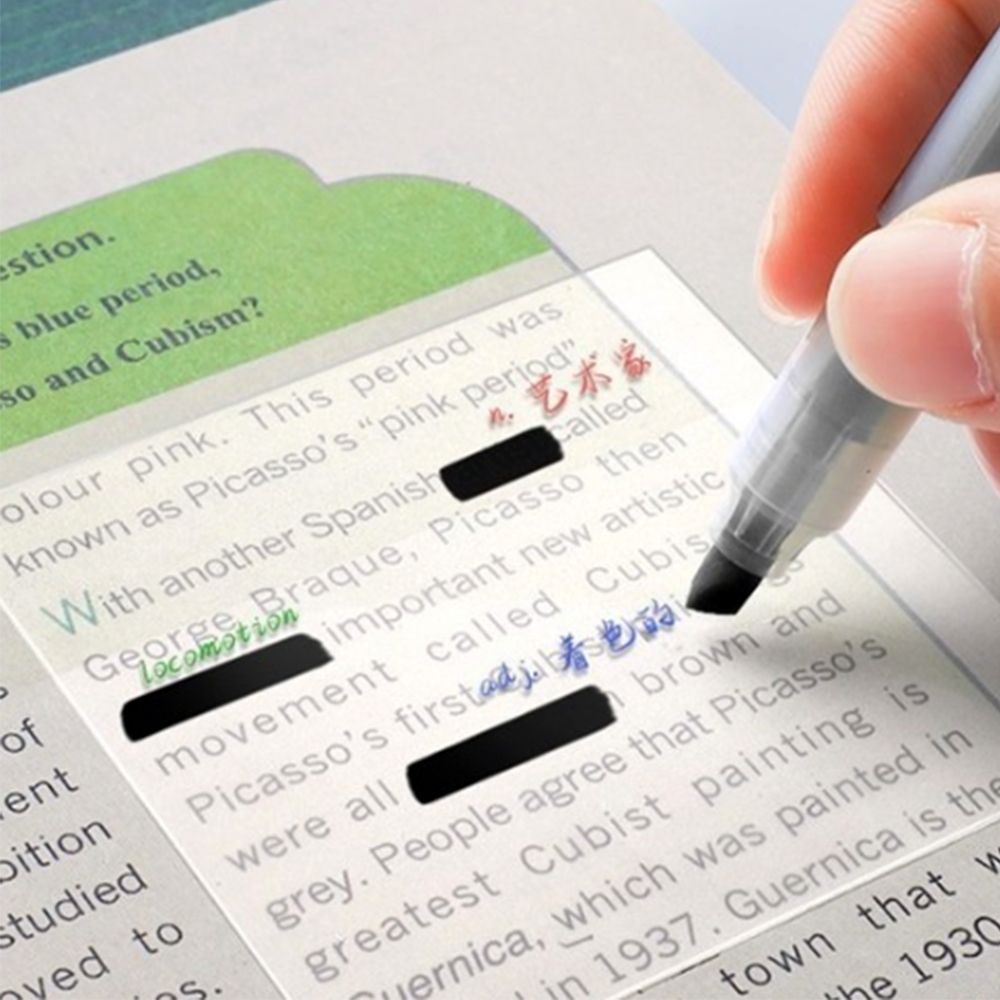 estion.
s blue period,
so and Cubism?
olour pink. This period was
known as Picasso's “pink period”
n. 艺术家
With another Spanish called
George Braque, Picasso then
locomotion
important new artistic
movement called Cubis
adj. 着色的
Picasso's first
were all brown and
grey. People agree that Picasso's
greatest Cubist painting is
Guernica, which was painted in
in 1937. Guernica is the
of
ent
bition
studied
oved to
ies.
town that w
the 1930